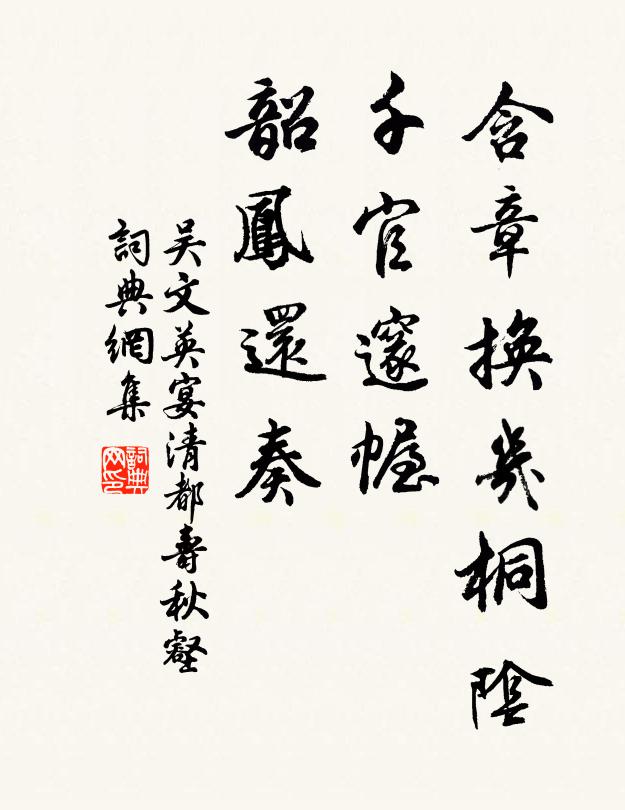 含章換幾桐陰
千官邃幄
韶鳳還奏
吴文英宴清都壽秋壑
詞典網集
詞典网印